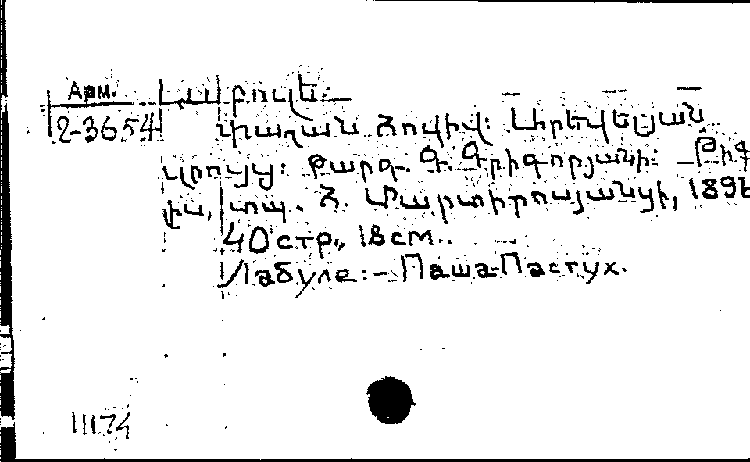 Арм.
2-3654
Լաբուլե.
Փաշան հովիվ: Արեվելյան
զրույց: Թարգ. Գ. Գրիգորյանի: Թիֆ
լիս, տպ. Հ. Մարտիրոսյանցի, 189
40 стр., 18 см.
Лабуле:- Паша-Пастух.
11174